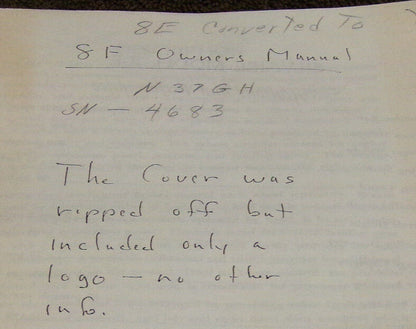 8E Converted To
8F Owners Manual
N 37GH
SN - 4683
The Cover was
ripped off but
included only a
logo - no other
info.